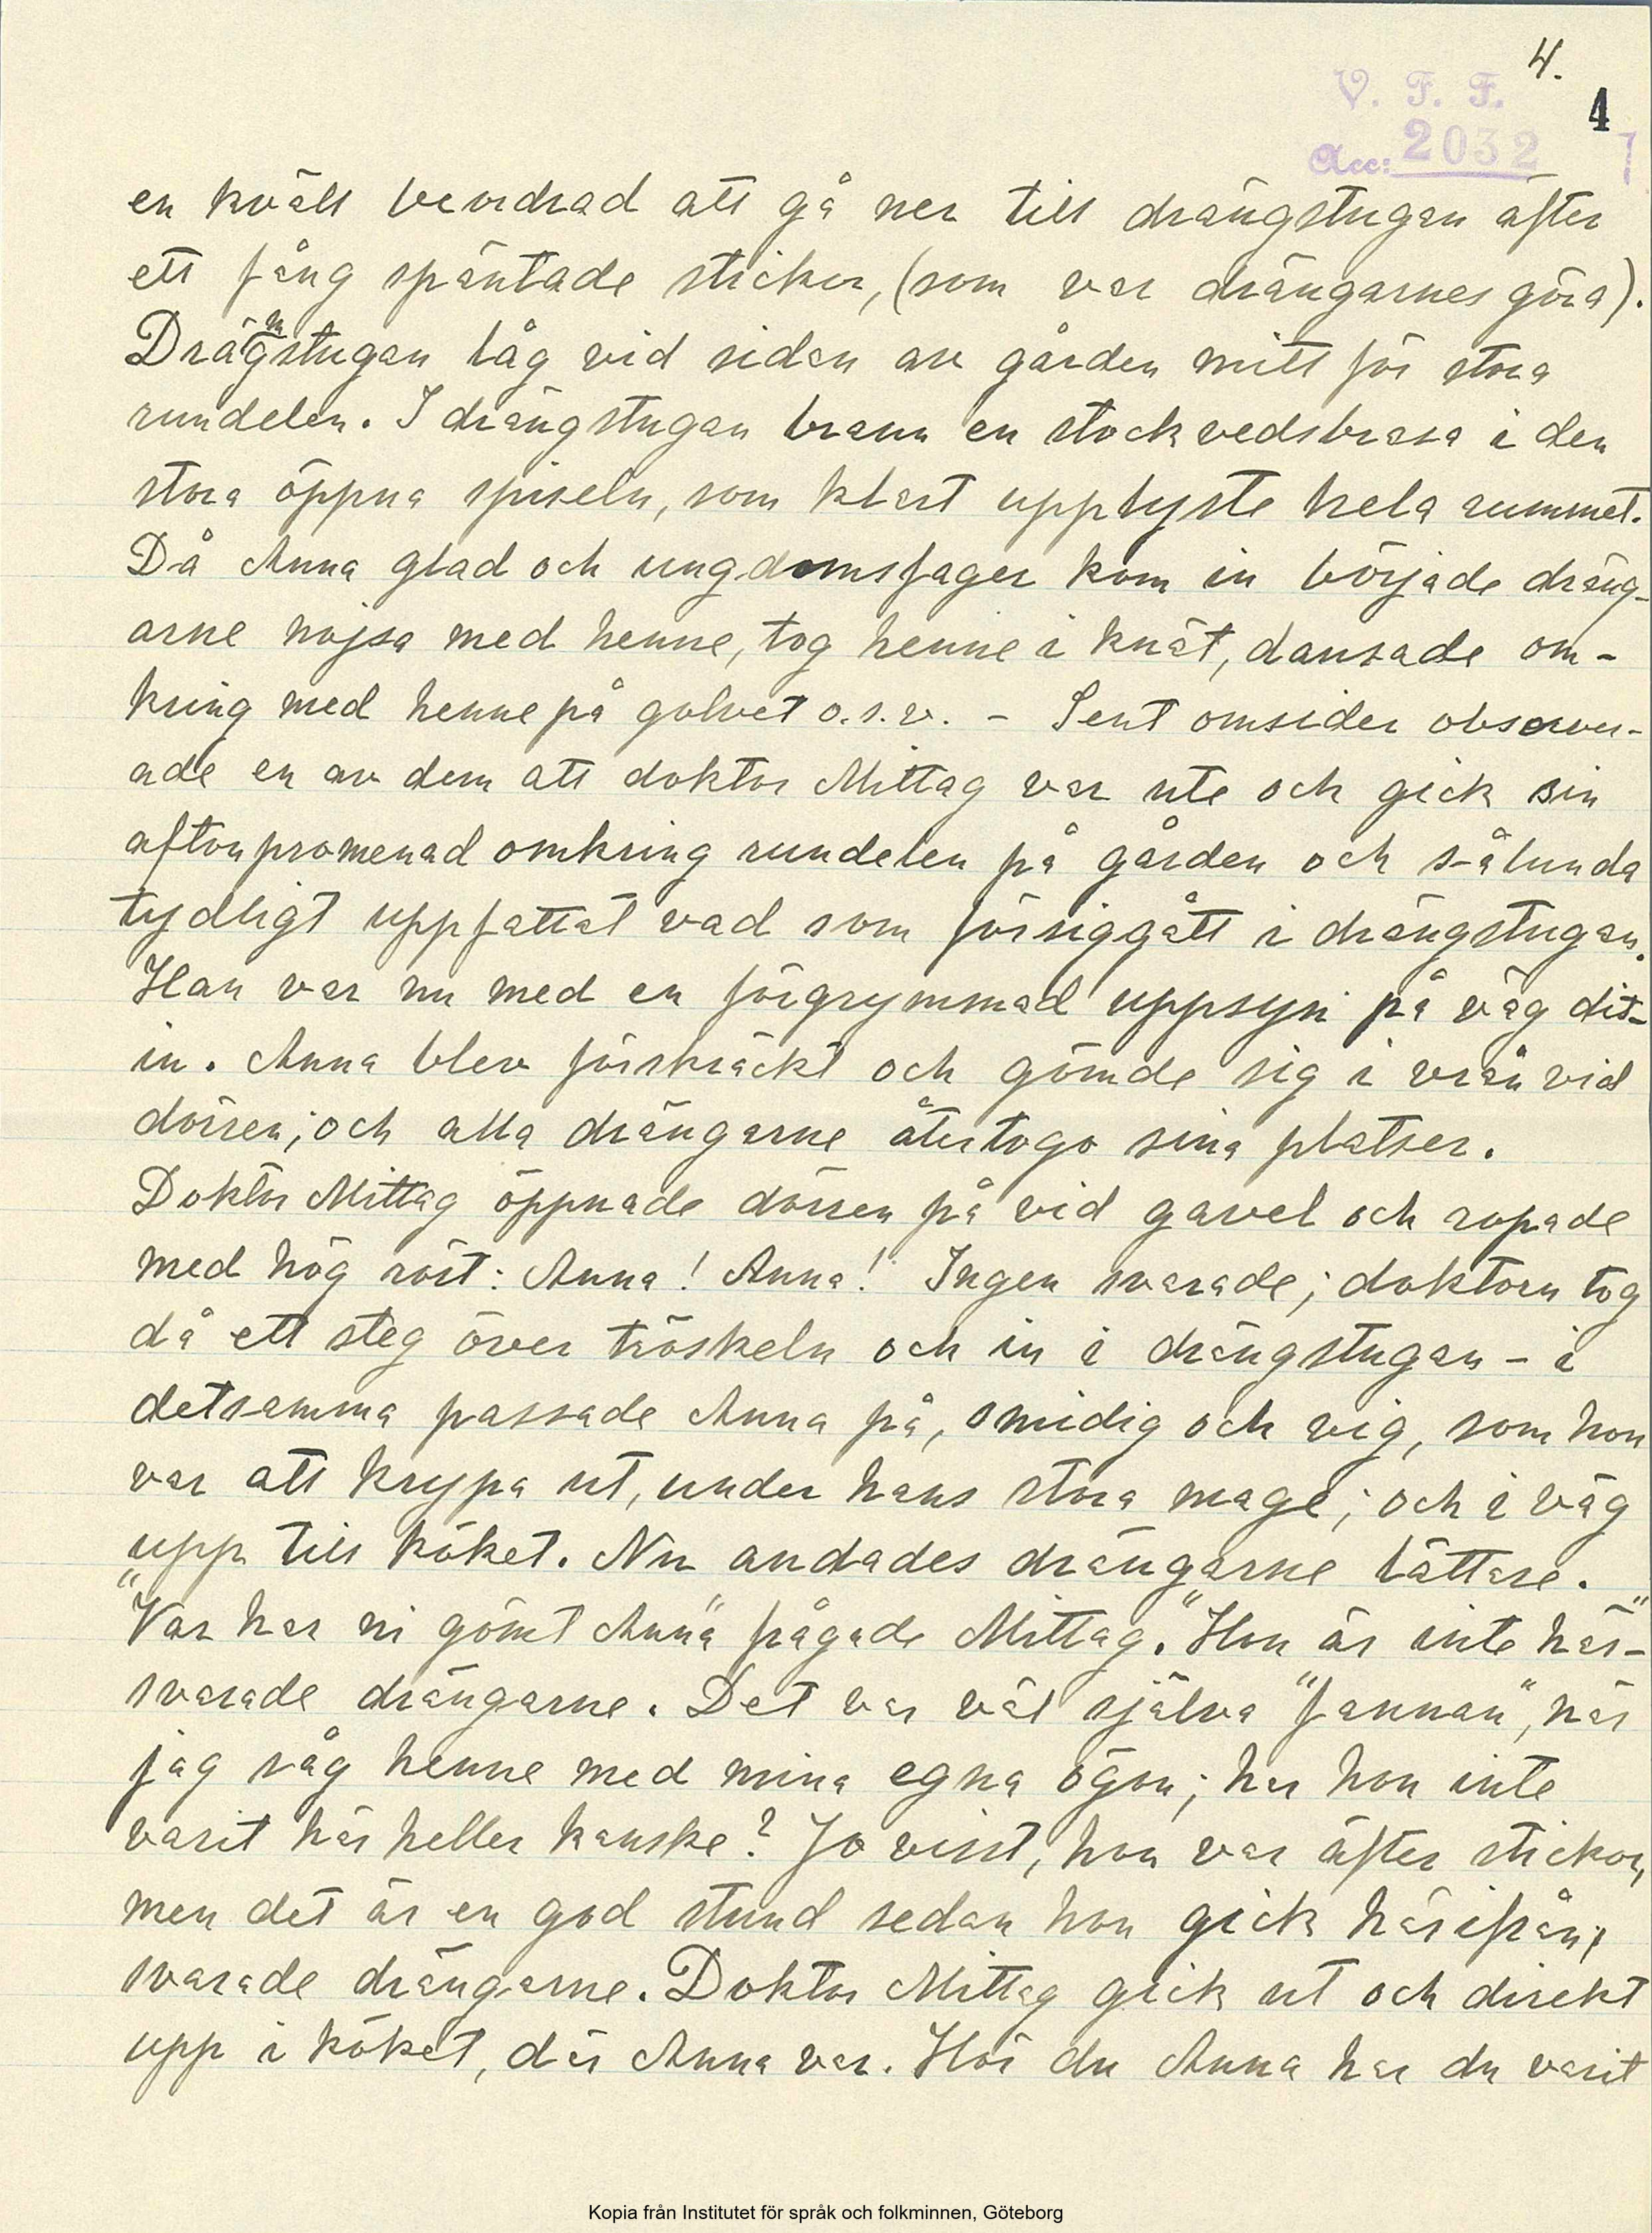 4.
V. F. F.
4
Acc: 2032
en kväll beordrad att gå ner till drängstugan äfter
ett fång späntade stickor, (som var drängarnes göra).
Drängstugan låg vid sidan av gården mitt för stora
rundelen. I drängstugan brann en stockvedsbrasa i den
stora öppna spiseln, som klart upplyste hela rummet.
Då Anna glad och ungdomsfager kom in började dräng-
arne nojsa med henne, tog henne i knät, dansade om-
kring med henne på golvet o.s.v. - Sent omsider observer-
ade en av dem att doktor Mittag var ute och gick sin
aftonpromenad omkring rundelen på gården och sålunda
tydligt uppfattat vad som försiggått i drängstugan.
Han var nu med en förgrymmad uppsyn på väg dit-
in. Anna blev förskräckt och gömde sig i vrån vid
dörren; och alla drängarne återtogo sina platser.
Doktor Mittag öppnade dörren på vid gavel och ropade
med hög röst: Anna! Anna! Ingen svarade; doktorn tog
då ett steg över tröskeln och in i drängstugan - i
detsamma passade Anna på, smidig och vig, som hon
var att krypa ut, under hans stora mage; och i väg
upp till köket. Nu andades drängarne lättare.
"Var har ni gömt Anna" frågade Mittag. "Hon är inte här"-
svarade drängarne. Det var väl själva "fannan", när
jag såg henne med mina egna ögon; har hon inte
varit här heller kanske? Jo visst, hon var äfter stickor,
men det är en god stund sedan hon gick härifrån;
svarade drängarne. Doktor Mittag gick ut och direkt
upp i köket, där Anna var. Hör du Anna har du varit
Kopia från Institutet för språk och folkminnen, Göteborg